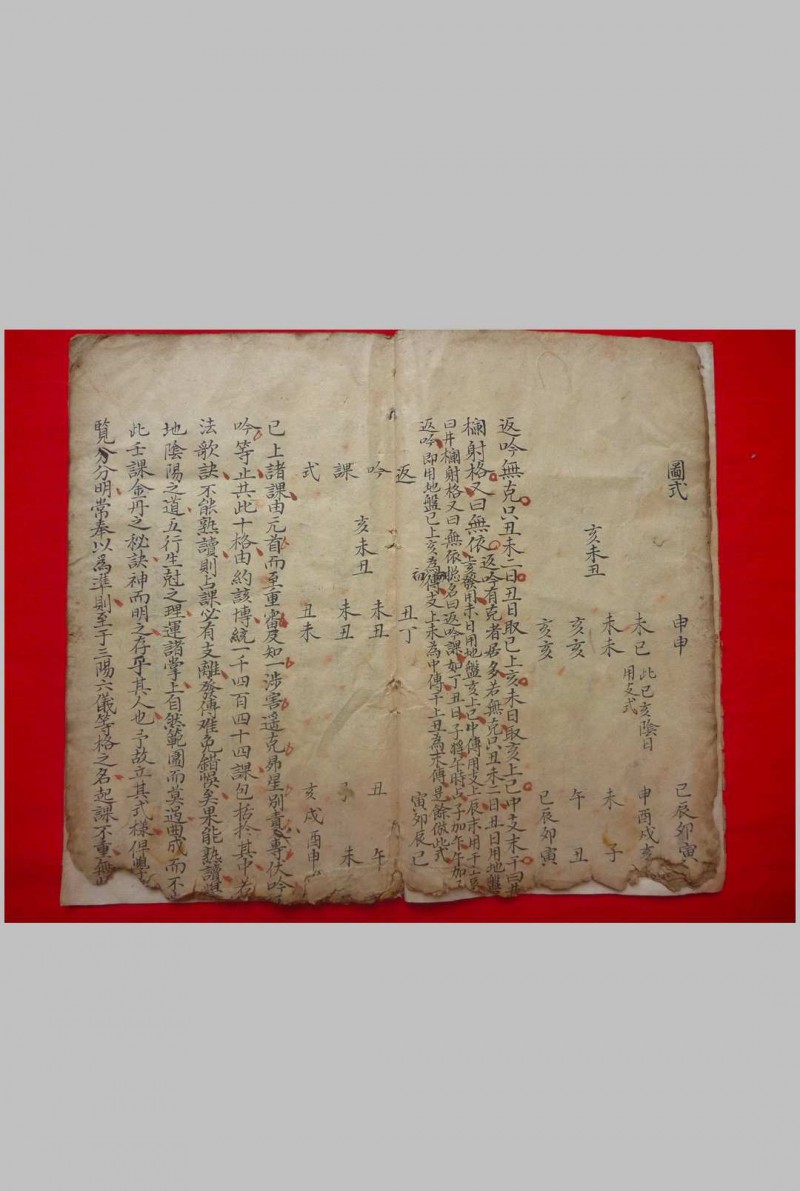 圖式
亥未丑
申申 未巳 未未 亥亥 亥亥
此己亥陰日
用支式
巳辰卯寅
申酉戌亥
未 子
午 丑
巳辰卯寅
返吟無克只丑未二日丑日取巳上亥未日取亥上巳中支末干曰井
欄射格又曰無依
返吟有克者居多若無克只丑未二日丑日用地盤
上發用未日用地盤亥上巳中傳用支上辰末用干上
曰井欄射格又曰無依總名曰返吟課如丁丑日子將午時以子加午午加
返吟即用地盤巳上亥為初傳支上未為中傳干上丑為末傳是餘倣此式
返吟課式
亥未丑
丑丁 未丑 未丑 丑未
寅卯辰巳
丑 午
子 未
亥戌酉申
已上諸課由元首而至重審及知一涉害遥克昴星別責八專伏吟
吟等止共此十格由約該博統一千四百四十四課包括於其中若
法歌訣不能熟讀則占課必有支離發傳难免錯悞矣果能熟讀
地陰陽之道五行生尅之理運諸掌上自然範圍而莫過曲成而不
此壬課金丹之秘訣神而明之存乎其人也予故立其式樣俱
覽分分明常奉以為準則至于三陽六儀等格之名起課不重無